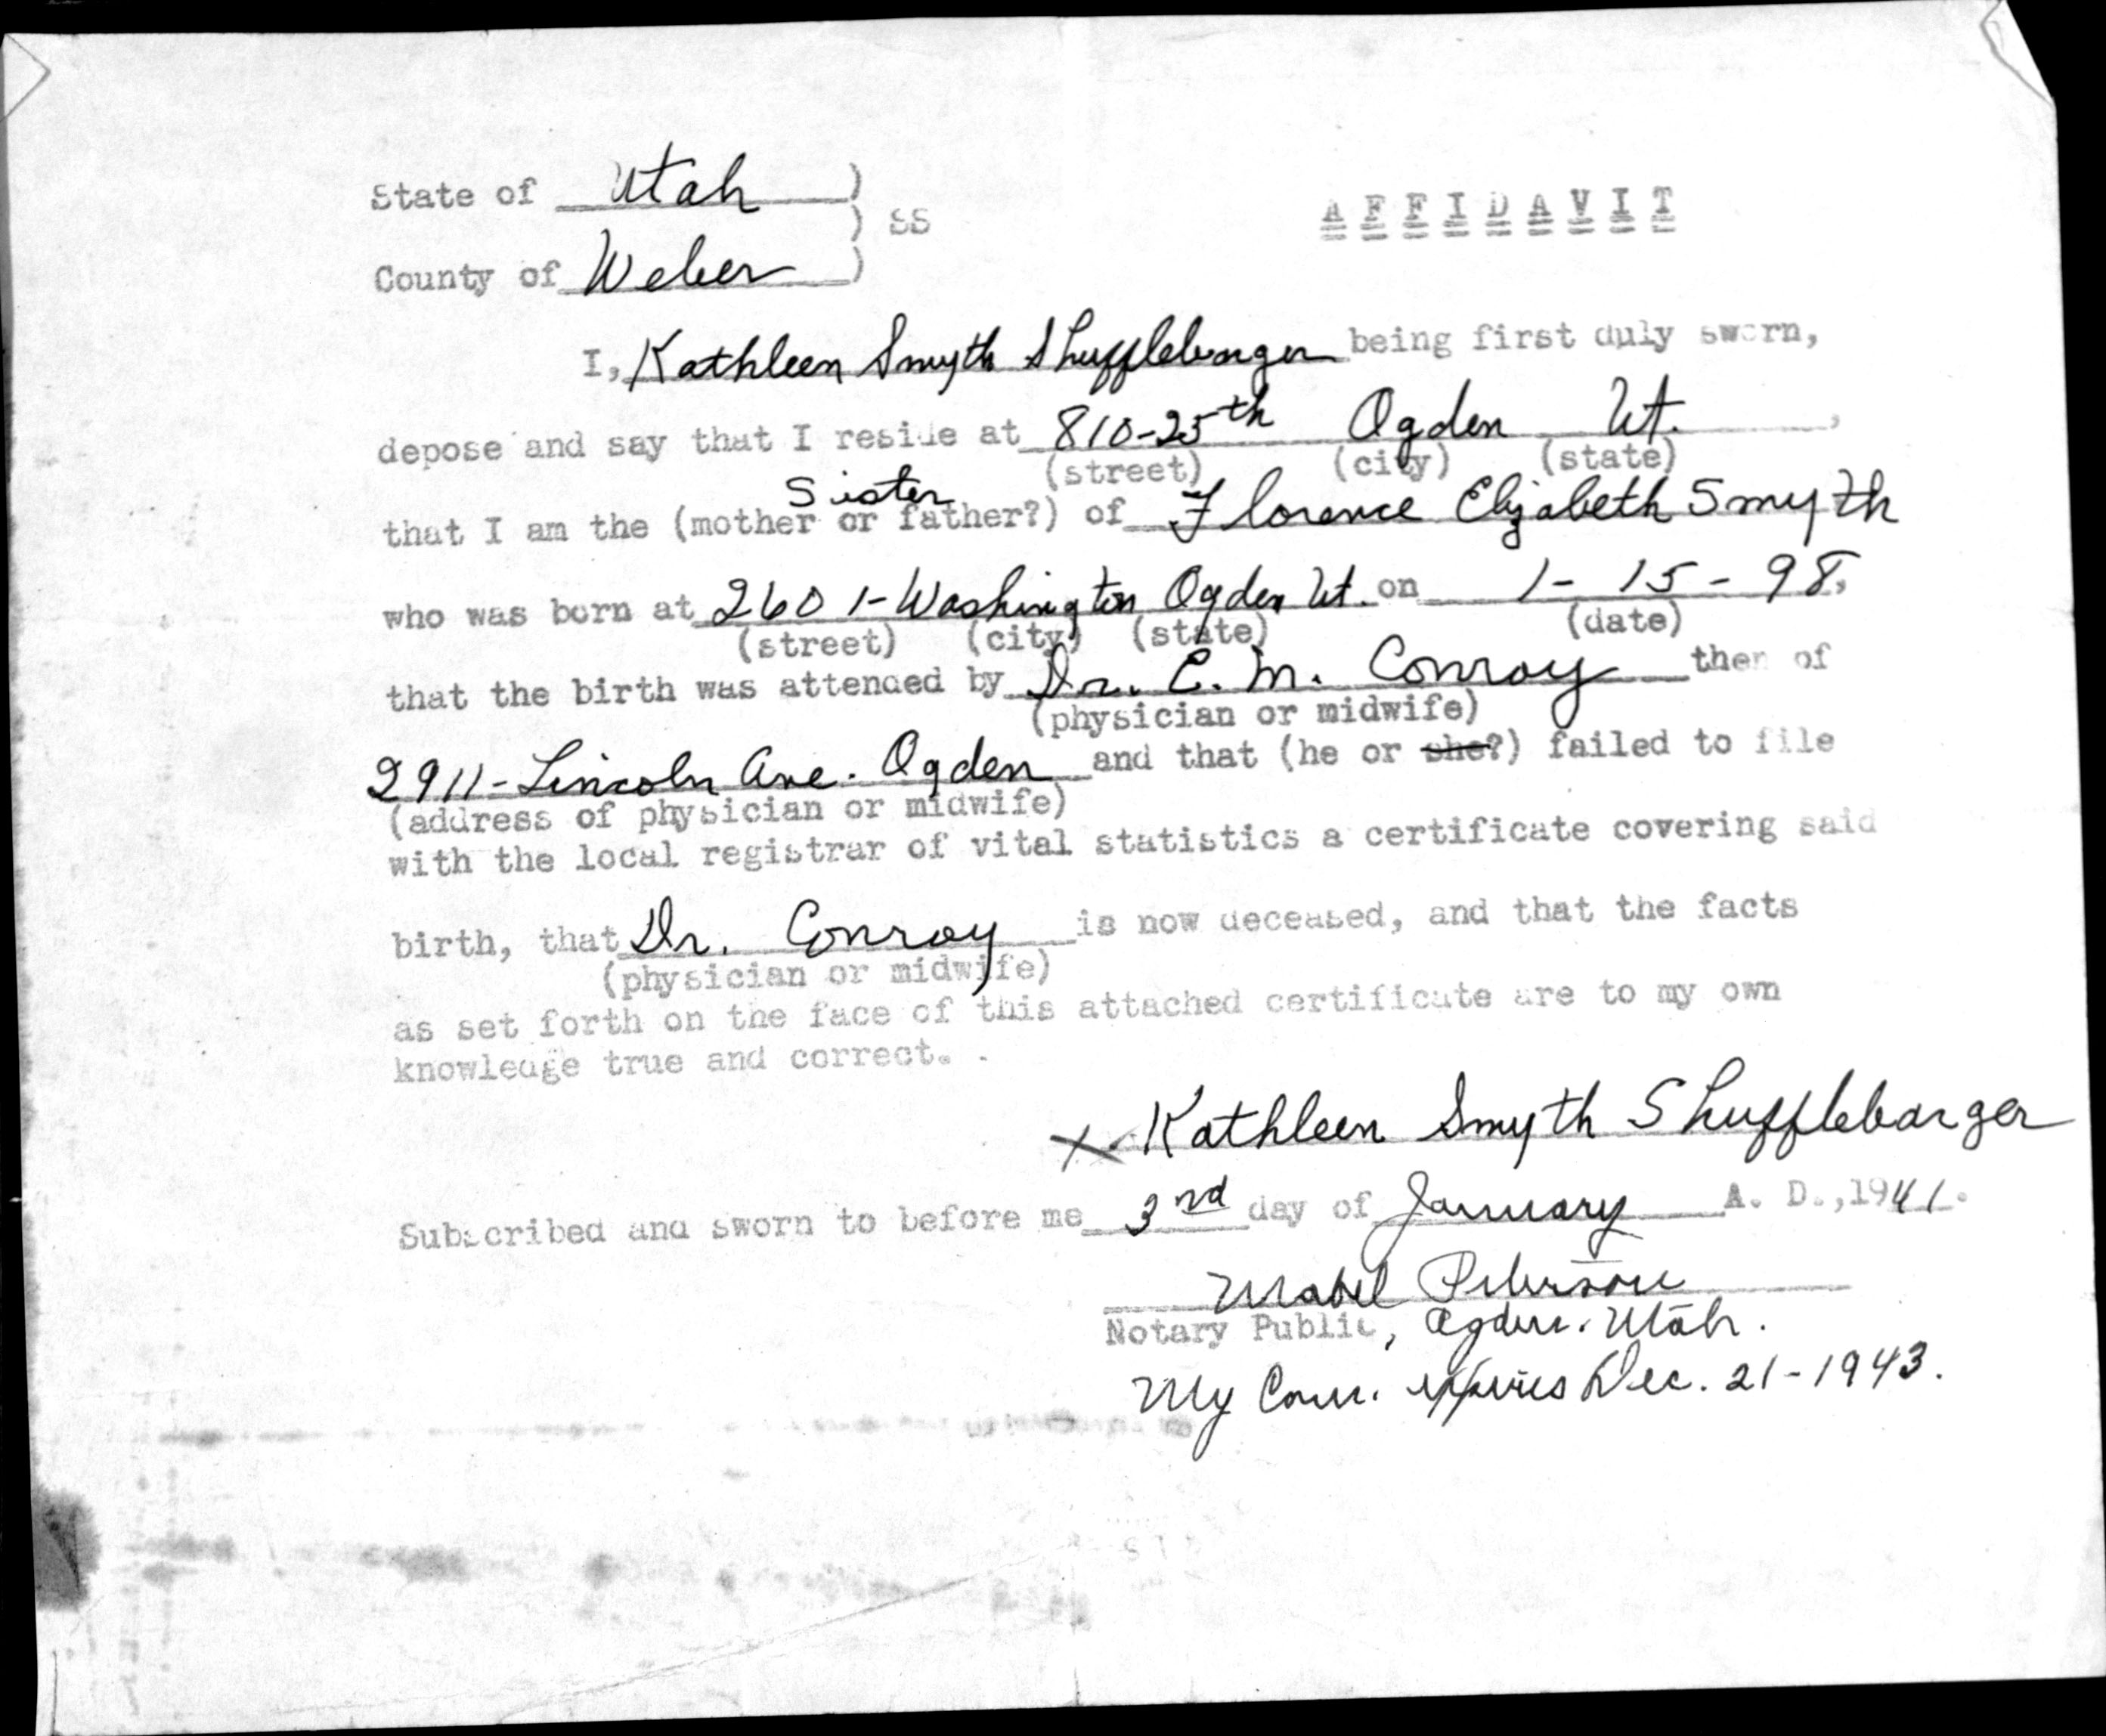 State of Utah )
) SS
AFFIDAVIT
County of Weber )
I, Kathleen Smyth Shufflebarger being first duly sworn,
depose and say that I reside at 810-25th Ogden Ut. ,
(street) (city) (state)
Sister
that I am the (mother or father?) of Florence Elizabeth Smyth
who was born at 2601-Washington Ogden Ut. on 1-15-98,
(street) (city) (state) (date)
that the birth was attended by Dr. E. M. Conroy then of
(physician or midwife)
2911-Lincoln Ave. Ogden and that (he or she?) failed to file
(address of physician or midwife)
with the local registrar of vital statistics a certificate covering said
birth, that Dr. Conroy is now deceased, and that the facts
(physician or midwife)
as set forth on the face of this attached certificate are to my own
knowledge true and correct.
X Kathleen Smyth Shufflebarger
Subscribed and sworn to before me 3rd day of January A. D., 1941.
Mabel Peterson
Notary Public, Ogden, Utah.
My Com. expires Dec. 21-1943.